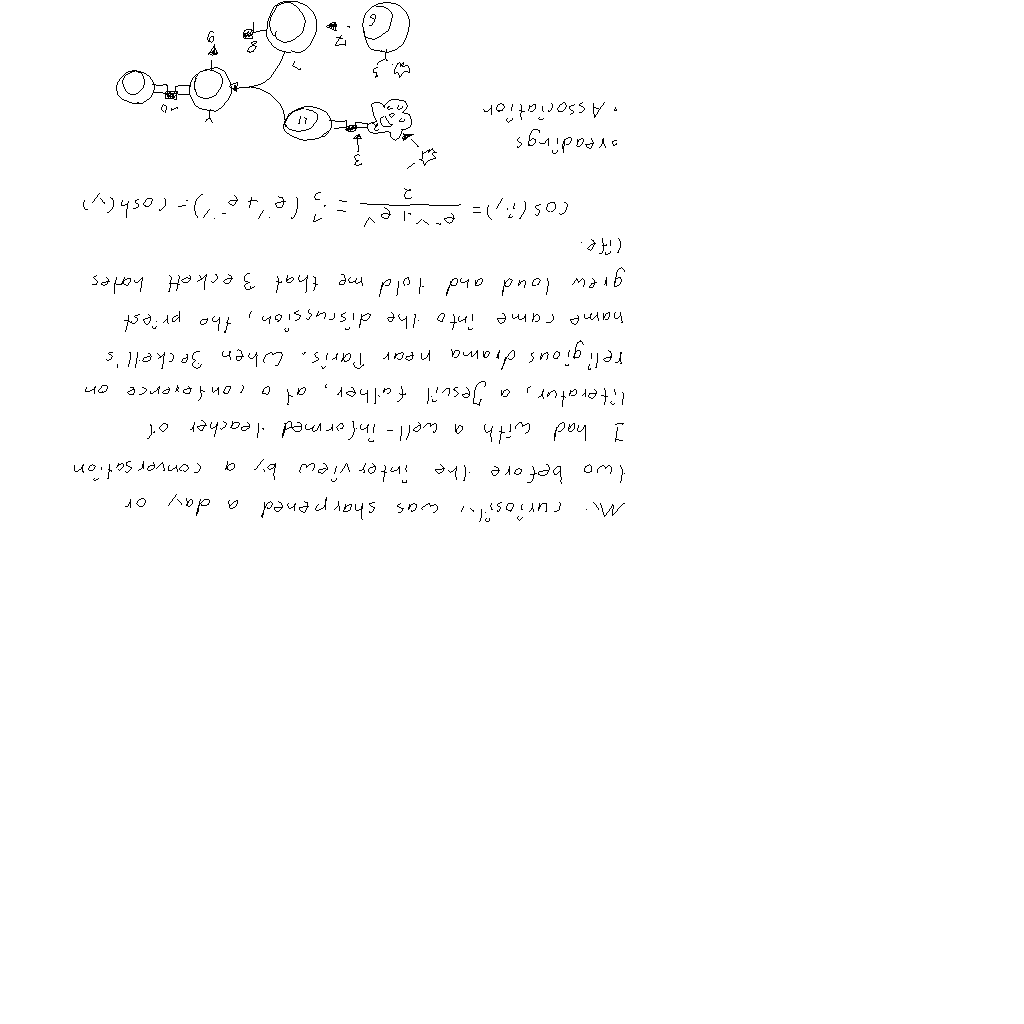 My curiosity was sharpened a day or
two before the interview by a conversation
I had with a well-informed teacher of
literatur, a Jesuit father, at a conference on
religious drama near Paris. When Beckett's
name came into the discussion, the priest
grew loud and told me that Beckett hates
life.
cos(iy) = \frac{e^{-y}+e^{y}}{2} = \frac{1}{2}(e^{y}+e^{-y}) = cosh(y)
• readings
• Association
1
3
11
5
6
7
8
9
10